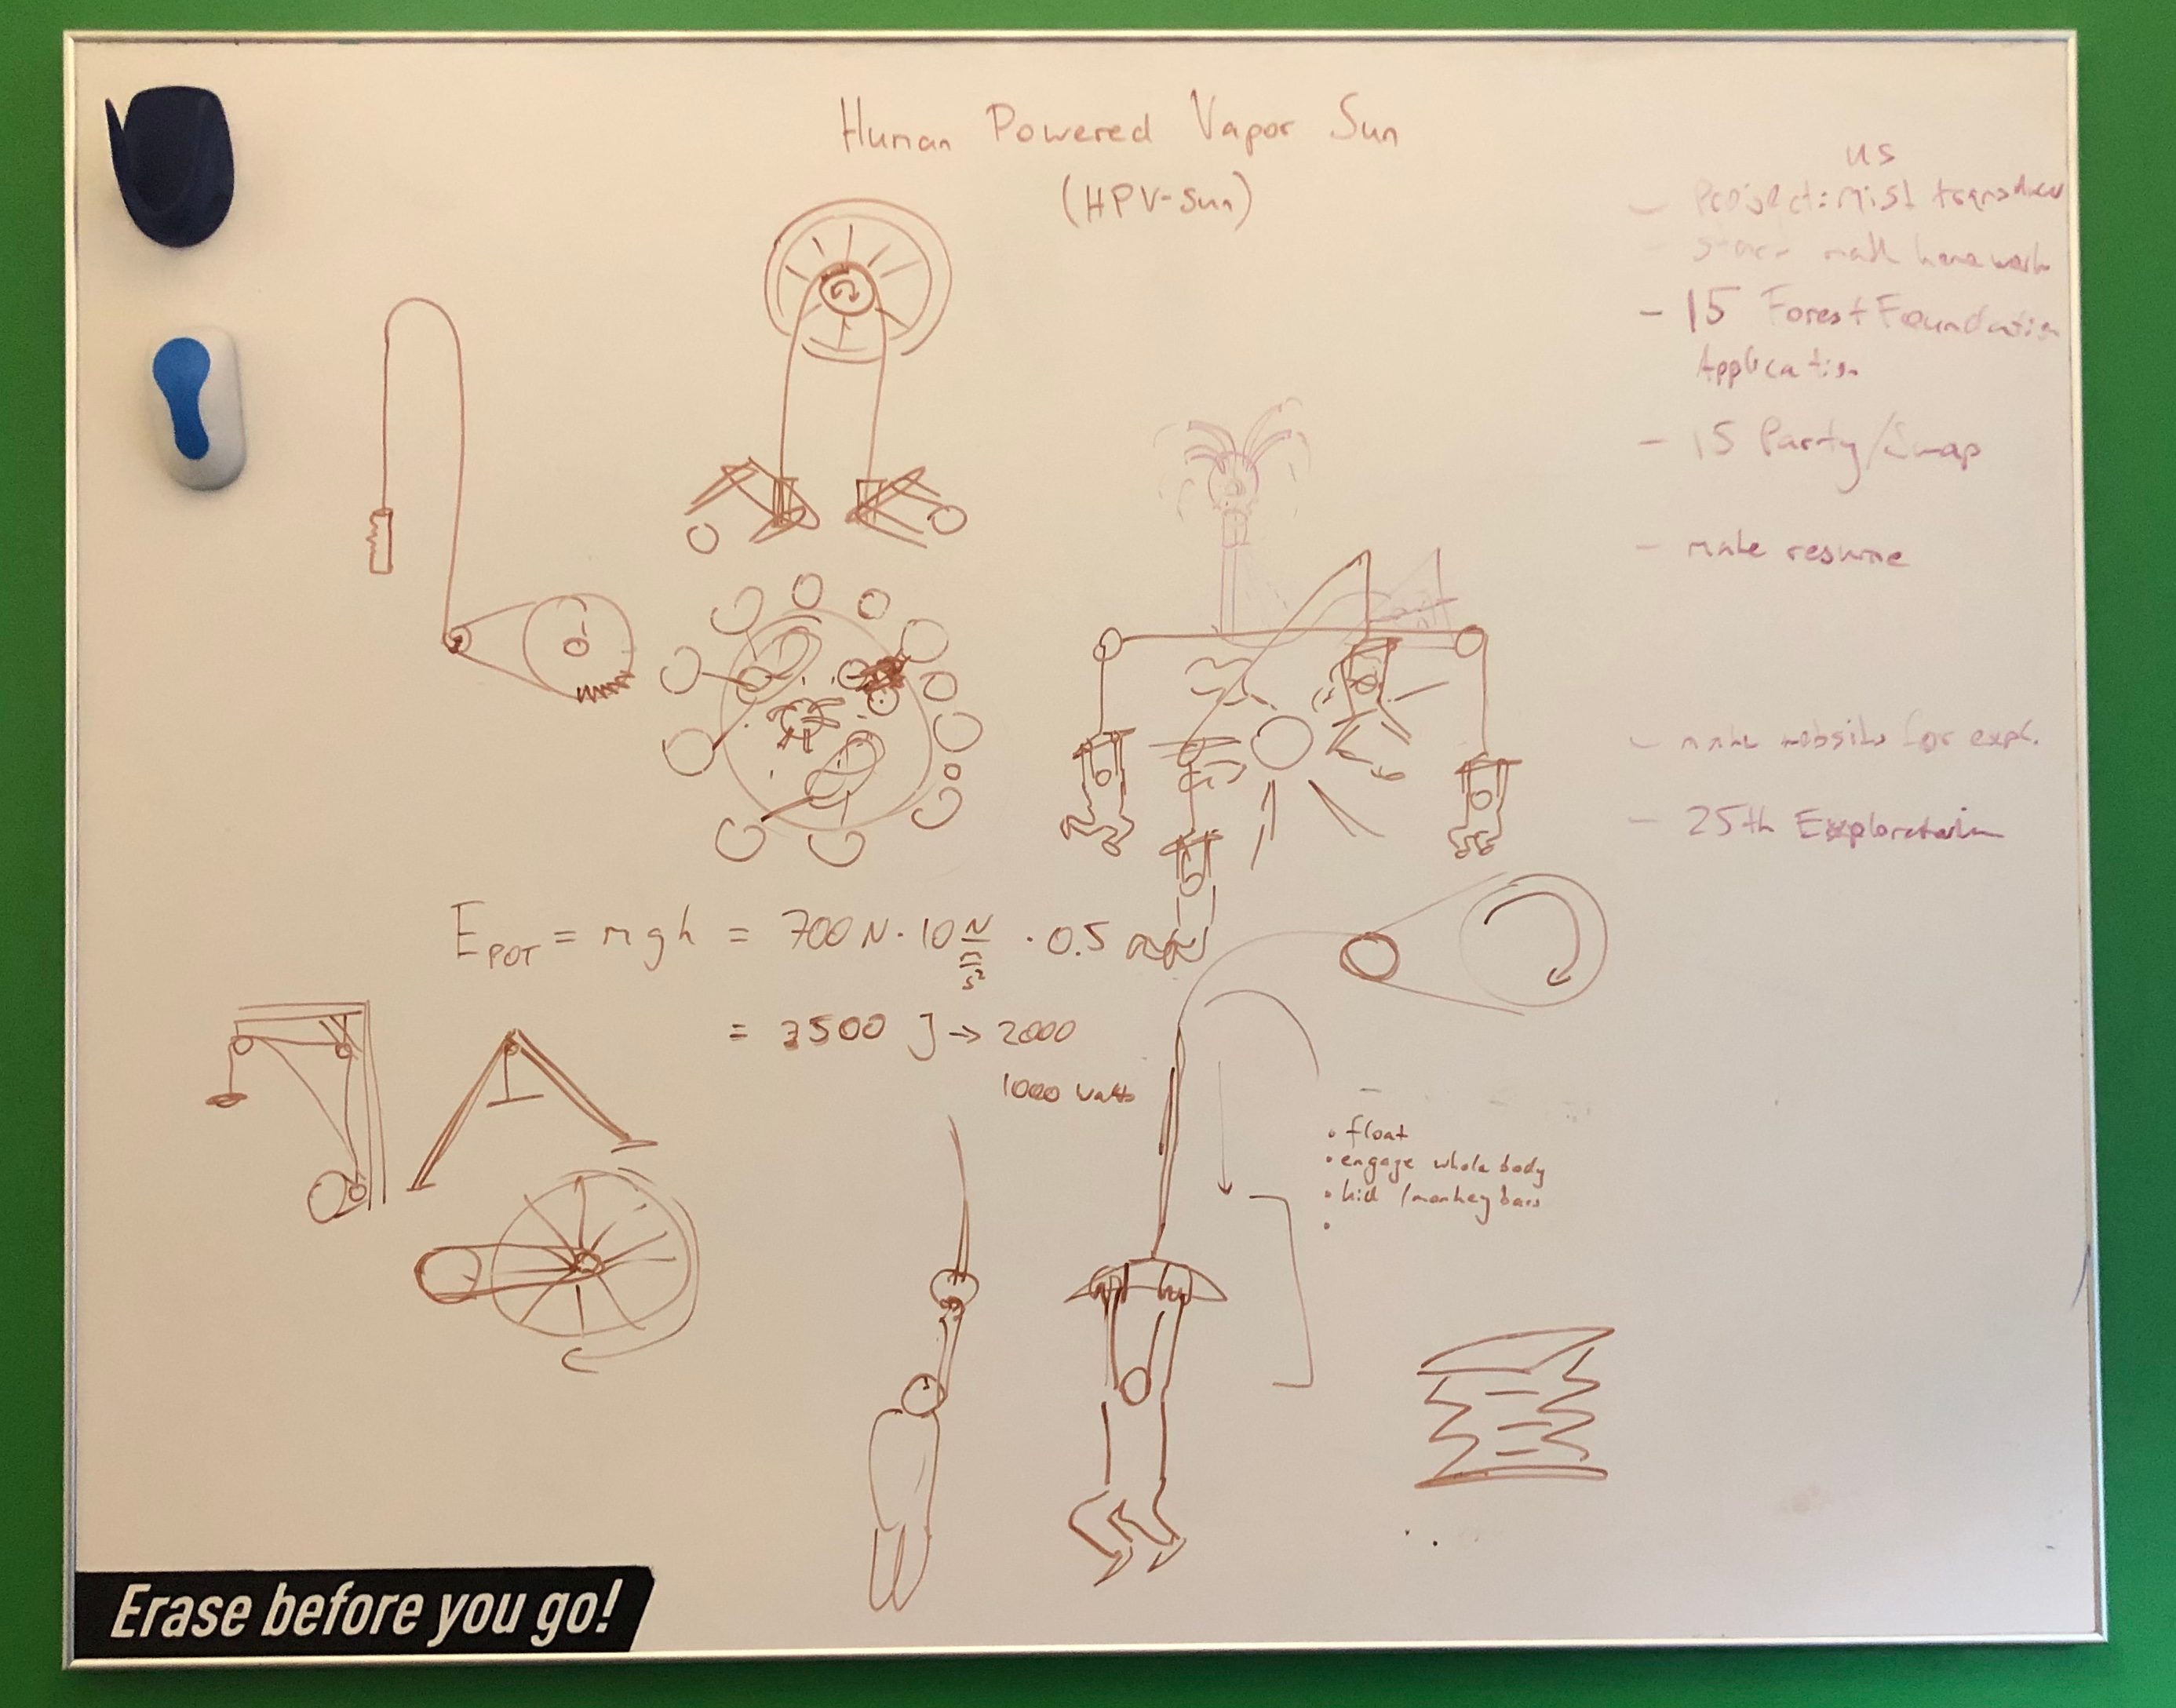 Human Powered Vapor Sun
(HPV-Sun)
us
- Project: Mist transducer
math homework
- 15 Forest Foundation
Application
- 15 Party/Swap
- make resume
- make website for expl.
- 25th Exploratorium
E_POT = mgh = 700 N · 10 N/(m/s²) · 0.5
= 3500 J → 2000
1000 watts
• float
• engage whole body
• kid /monkey bars
•
Erase before you go!